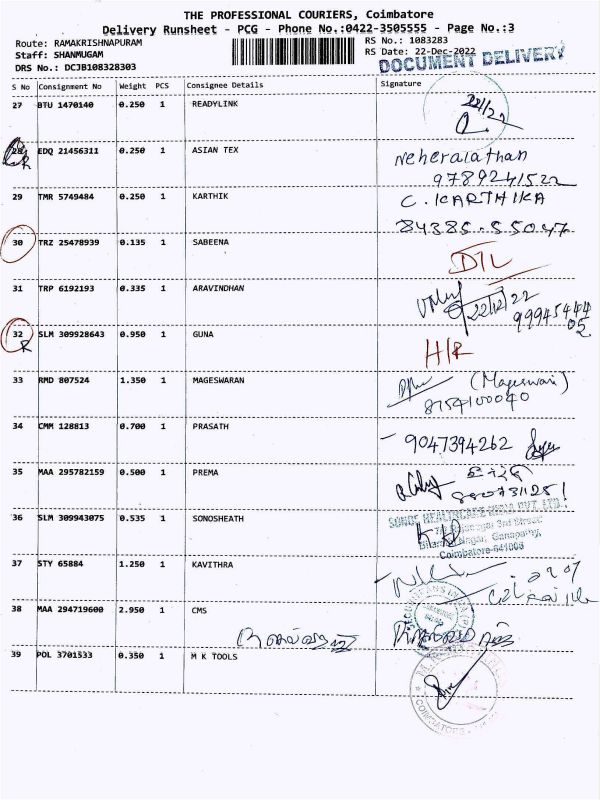 THE PROFESSIONAL COURIERS, Coimbatore
Delivery Runsheet - PCG - Phone No.:0422-3505555 - Page No.:3
Route: RAMAKRISHNAPURAM
RS No.: 1083283
Staff: SHANMUGAM
RS Date: 22-Dec-2022
DOCUMENT DELIVERY
DRS No.: DCJB108328303
S No Consignment No Weight PCS Consignee Details Signature
27 BTU 1470140 0.250 1 READYLINK
22/22
28 EDQ 21456311 0.250 1 ASIAN TEX
R
9789241522
29 TMR 5749484 0.250 1 KARTHIK C. KARTHIKA
84385-55047
30 TRZ 25478939 0.135 1 SABEENA
D/L
31 TRP 6192193 0.335 1 ARAVINDHAN
22/12/22
99945444
05
32 SLM 309928643 0.950 1 GUNA
R
H/R
33 RMD 807524 1.350 1 MAGESWARAN (Mageswari)
8754100040
34 CMM 128813 0.700 1 PRASATH
9047394262
35 MAA 295782159 0.500 1 PREMA
36 SLM 309943075 0.535 1 SONOSHEATH
3rd Street
Nagar, Ganapathy,
Coimbatore-641006
37 STY 65884 1.250 1 KAVITHRA
38 MAA 294719600 2.950 1 CMS
39 POL 3701533 0.350 1 M K TOOLS
COIMBATORE